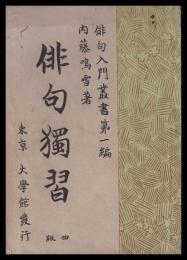 俳句入門叢書第一編
内藤鳴雪著
俳句獨習
四版
東京 大學館發行